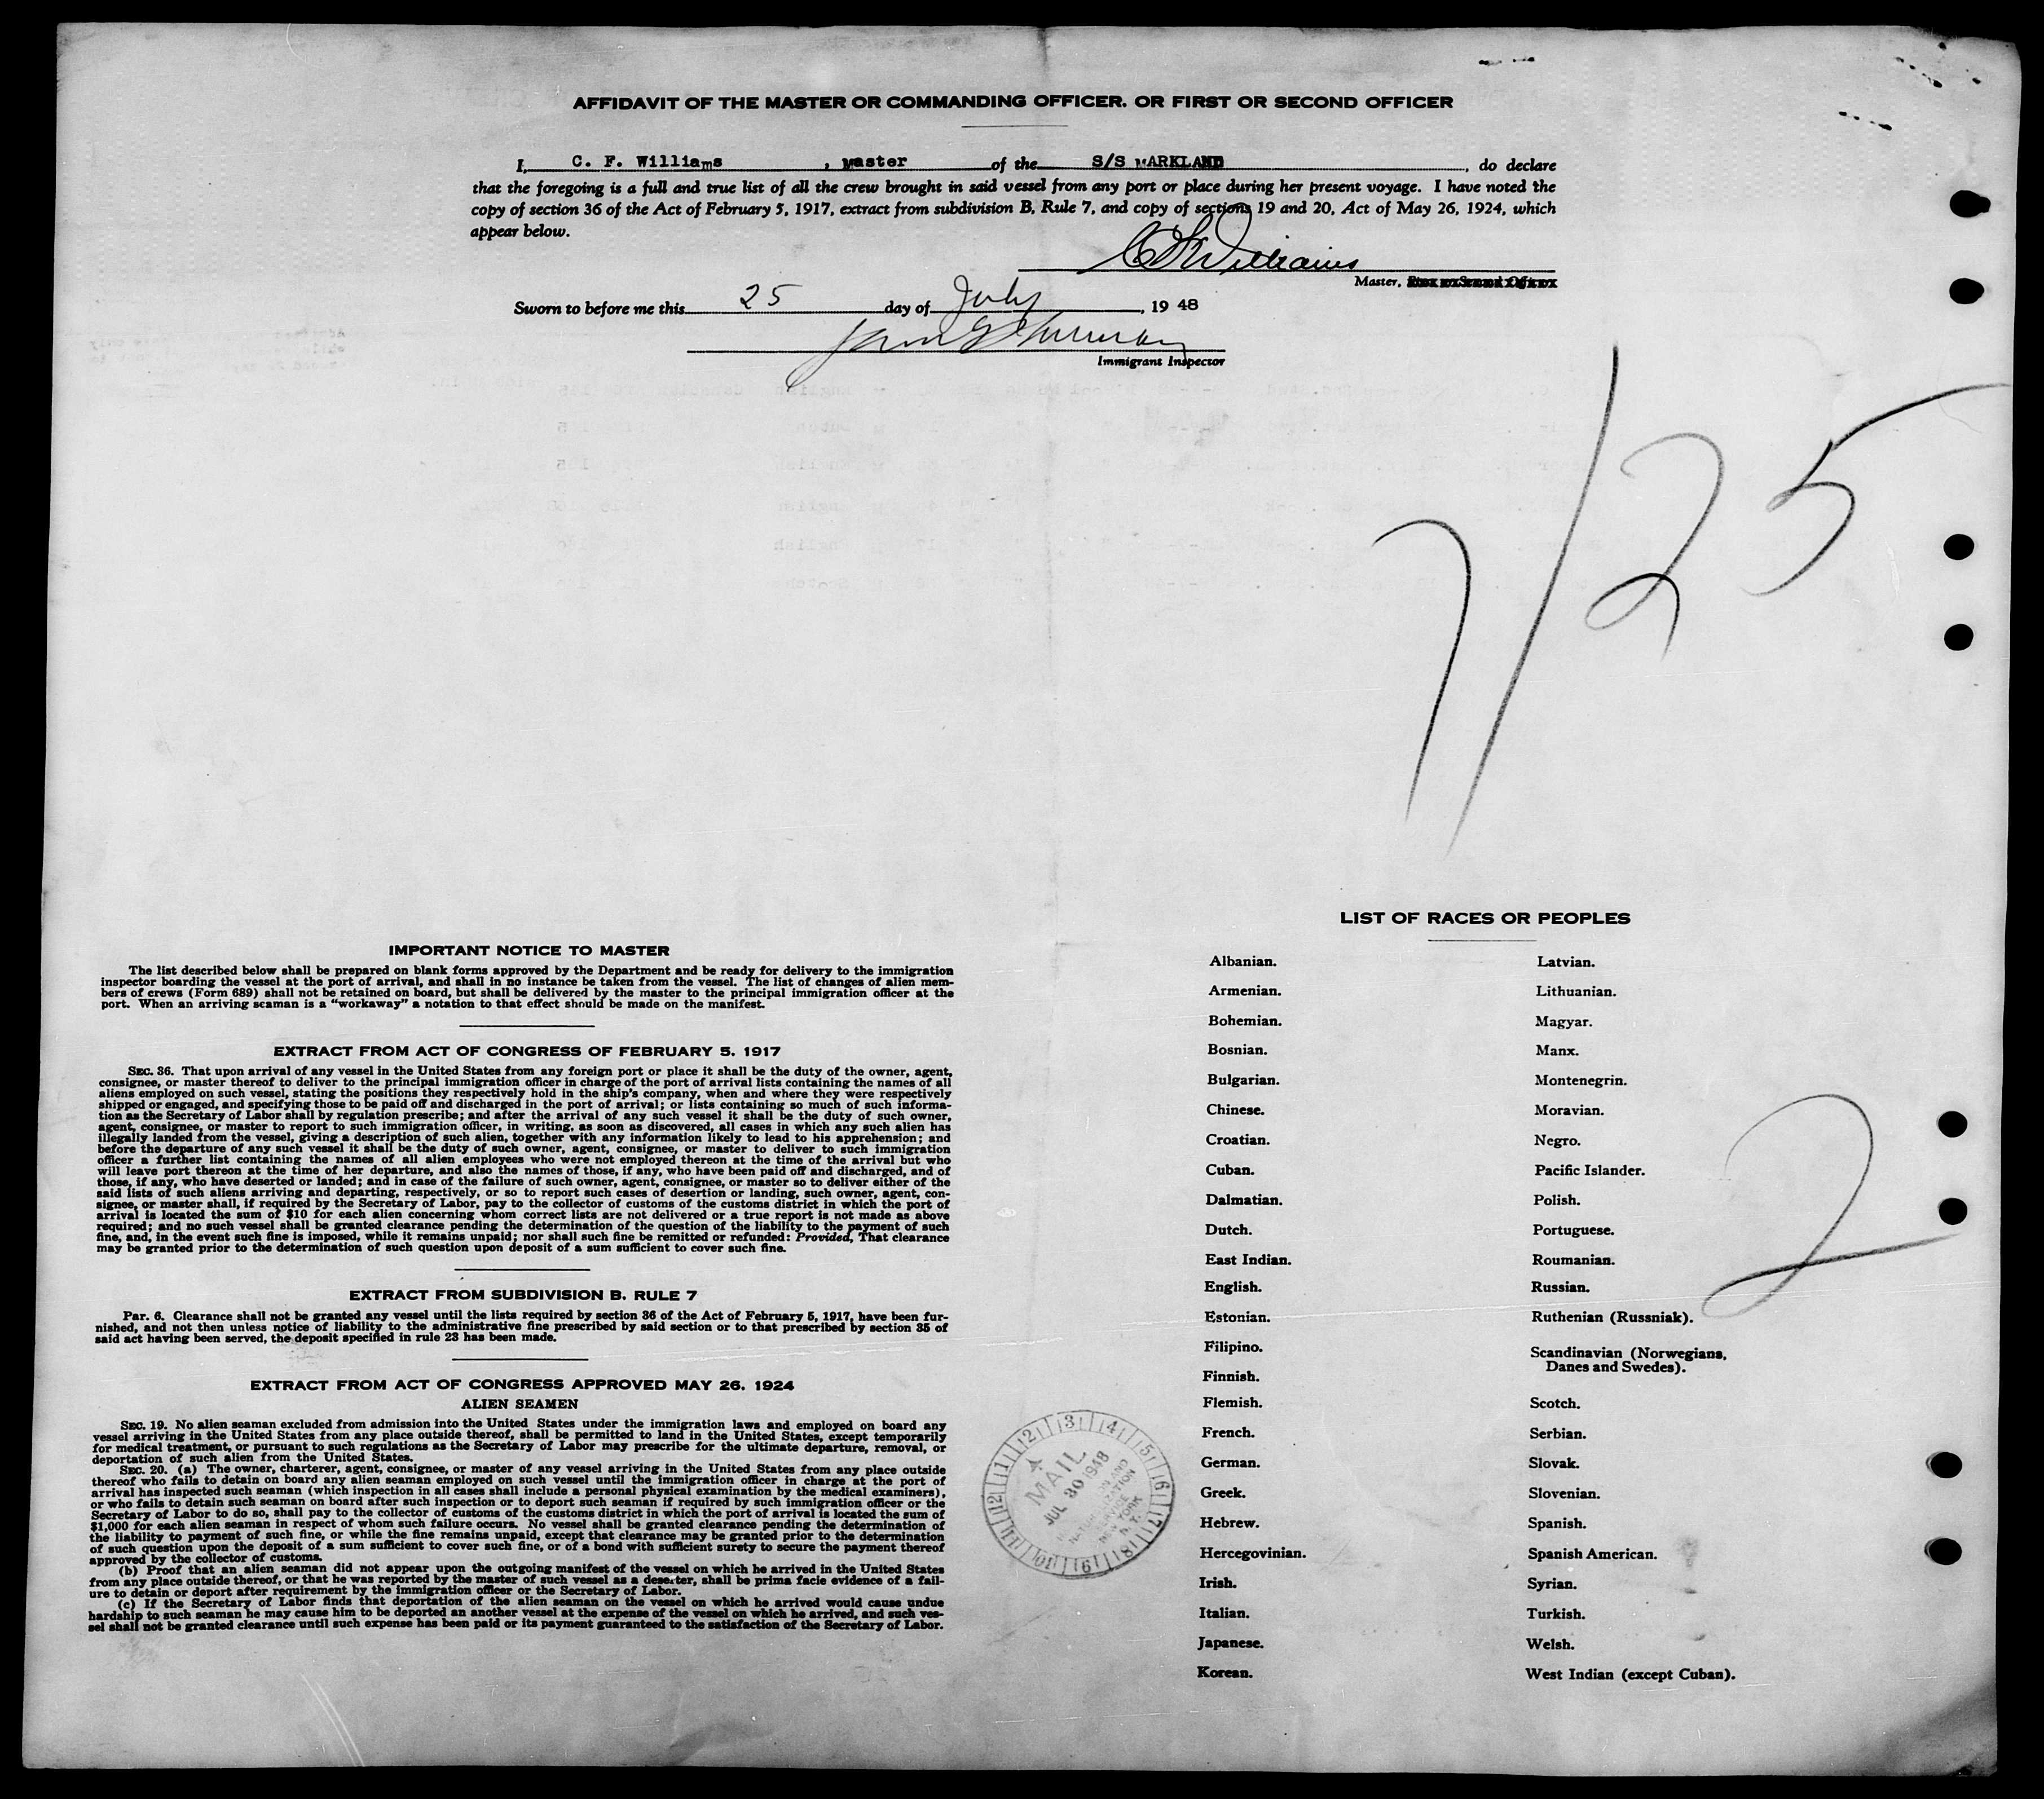 AFFIDAVIT OF THE MASTER OR COMMANDING OFFICER, OR FIRST OR SECOND OFFICER
I, C. F. Williams, Master of the S/S MARKLAND, do declare
that the foregoing is a full and true list of all the crew brought in said vessel from any port or place during her present voyage. I have noted the
copy of section 36 of the Act of February 5, 1917, extract from subdivision B, Rule 7, and copy of sections 19 and 20, Act of May 26, 1924, which
appear below.
C F Williams
Master,
Sworn to before me this 25 day of July, 19 48
Immigrant Inspector
7/25
IMPORTANT NOTICE TO MASTER
The list described below shall be prepared on blank forms approved by the Department and be ready for delivery to the immigration
inspector boarding the vessel at the port of arrival, and shall in no instance be taken from the vessel. The list of changes of alien mem-
bers of crews (Form 689) shall not be retained on board, but shall be delivered by the master to the principal immigration officer at the
port. When an arriving seaman is a "workaway" a notation to that effect should be made on the manifest.
EXTRACT FROM ACT OF CONGRESS OF FEBRUARY 5, 1917
SEC. 36. That upon arrival of any vessel in the United States from any foreign port or place it shall be the duty of the owner, agent,
consignee, or master thereof to deliver to the principal immigration officer in charge of the port of arrival lists containing the names of all
aliens employed on such vessel, stating the positions they respectively hold in the ship's company, when and where they were respectively
shipped or engaged, and specifying those to be paid off and discharged in the port of arrival; or lists containing so much of such informa-
tion as the Secretary of Labor shall by regulation prescribe; and after the arrival of any such vessel it shall be the duty of such owner,
agent, consignee, or master to report to such immigration officer, in writing, as soon as discovered, all cases in which any such alien has
illegally landed from the vessel, giving a description of such alien, together with any information likely to lead to his apprehension; and
before the departure of any such vessel it shall be the duty of such owner, agent, consignee, or master to deliver to such immigration
officer a further list containing the names of all alien employees who were not employed thereon at the time of the arrival but who
will leave port thereon at the time of her departure, and also the names of those, if any, who have been paid off and discharged, and of
those, if any, who have deserted or landed; and in case of the failure of such owner, agent, consignee, or master so to deliver either of the
said lists of such aliens arriving and departing, respectively, or so to report such cases of desertion or landing, such owner, agent, con-
signee, or master shall, if required by the Secretary of Labor, pay to the collector of customs of the customs district in which the port of
arrival is located the sum of $10 for each alien concerning whom correct lists are not delivered or a true report is not made as above
required; and no such vessel shall be granted clearance pending the determination of the question of the liability to the payment of such
fine, and, in the event such fine is imposed, while it remains unpaid; nor shall such fine be remitted or refunded: Provided, That clearance
may be granted prior to the determination of such question upon deposit of a sum sufficient to cover such fine.
EXTRACT FROM SUBDIVISION B, RULE 7
Par. 6. Clearance shall not be granted any vessel until the lists required by section 36 of the Act of February 5, 1917, have been fur-
nished, and not then unless notice of liability to the administrative fine prescribed by said section or to that prescribed by section 35 of
said act having been served, the deposit specified in rule 23 has been made.
EXTRACT FROM ACT OF CONGRESS APPROVED MAY 26, 1924
ALIEN SEAMEN
SEC. 19. No alien seaman excluded from admission into the United States under the immigration laws and employed on board any
vessel arriving in the United States from any place outside thereof, shall be permitted to land in the United States, except temporarily
for medical treatment, or pursuant to such regulations as the Secretary of Labor may prescribe for the ultimate departure, removal, or
deportation of such alien from the United States.
SEC. 20. (a) The owner, charterer, agent, consignee, or master of any vessel arriving in the United States from any place outside
thereof who fails to detain on board any alien seaman employed on such vessel until the immigration officer in charge at the port of
arrival has inspected such seaman (which inspection in all cases shall include a personal physical examination by the medical examiners),
or who fails to detain such seaman on board after such inspection or to deport such seaman if required by such immigration officer or the
Secretary of Labor to do so, shall pay to the collector of customs of the customs district in which the port of arrival is located the sum of
$1,000 for each alien seaman in respect of whom such failure occurs. No vessel shall be granted clearance pending the determination of
the liability to the payment of such fine, or while the fine remains unpaid, except that clearance may be granted prior to the determination
of such question upon the deposit of a sum sufficient to cover such fine, or of a bond with sufficient surety to secure the payment thereof
approved by the collector of customs.
(b) Proof that an alien seaman did not appear upon the outgoing manifest of the vessel on which he arrived in the United States
from any place outside thereof, or that he was reported by the master of such vessel as a deserter, shall be prima facie evidence of a fail-
ure to detain or deport after requirement by the immigration officer or the Secretary of Labor.
(c) If the Secretary of Labor finds that deportation of the alien seaman on the vessel on which he arrived would cause undue
hardship to such seaman he may cause him to be deported an another vessel at the expense of the vessel on which he arrived, and such ves-
sel shall not be granted clearance until such expense has been paid or its payment guaranteed to the satisfaction of the Secretary of Labor.
1 2 3 4 5 6 7 8 9 10 11 12
MAIL
JUL 30 1948
NEW YORK
N. Y.
LIST OF RACES OR PEOPLES
Albanian.
Armenian.
Bohemian.
Bosnian.
Bulgarian.
Chinese.
Croatian.
Cuban.
Dalmatian.
Dutch.
East Indian.
English.
Estonian.
Filipino.
Finnish.
Flemish.
French.
German.
Greek.
Hebrew.
Hercegovinian.
Irish.
Italian.
Japanese.
Korean.
Latvian.
Lithuanian.
Magyar.
Manx.
Montenegrin.
Moravian.
Negro.
Pacific Islander.
Polish.
Portuguese.
Roumanian.
Russian.
Ruthenian (Russniak).
Scandinavian (Norwegians,
Danes and Swedes).
Scotch.
Serbian.
Slovak.
Slovenian.
Spanish.
Spanish American.
Syrian.
Turkish.
Welsh.
West Indian (except Cuban).
2